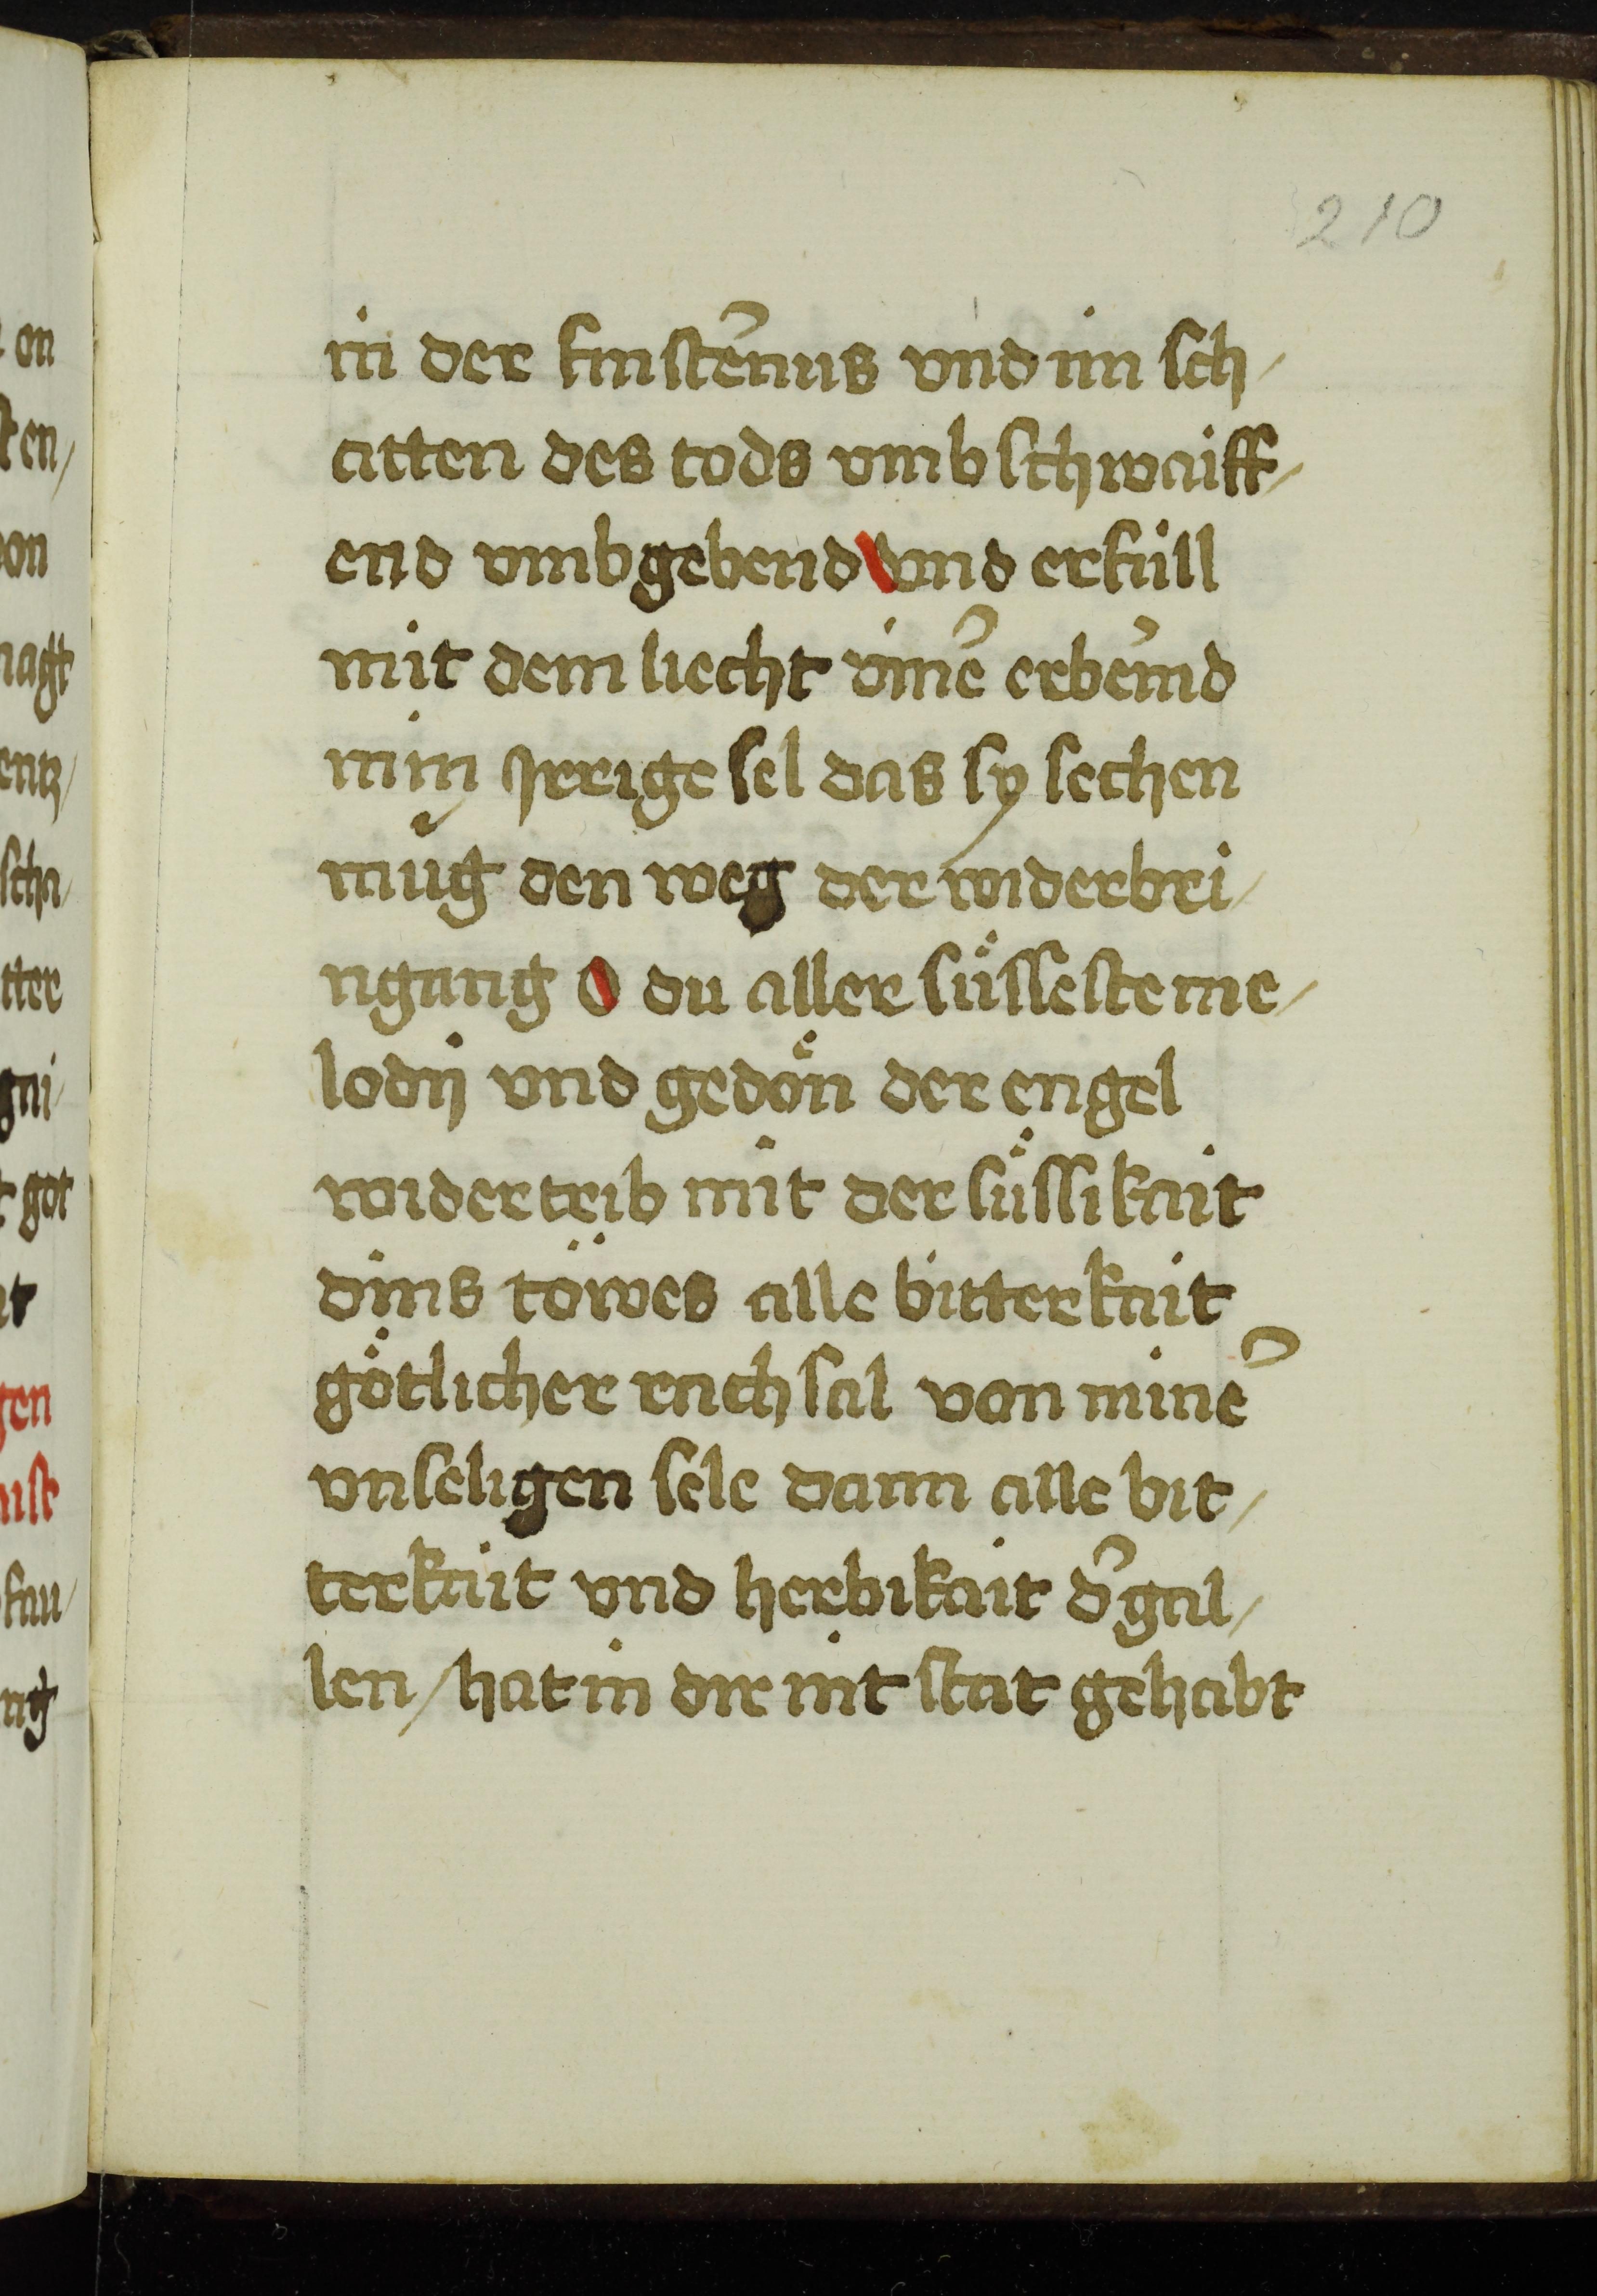 210
in der finsteꝛnus vnd im sch/
atten des tods vmb schwaiff/
end vmbgebend vnd erfüll
mit dem liecht dineꝛ erbeꝛmd
min Jrrige sel das sy sechen
müg den weg der widerbri/
ngung O du aller süssesteme/
lodij vnd gedön der engel
widertrib mit der süssikait
dins töwes alle bitterkait
götlicher rachsal von mineꝛ
vnseligen sele dann alle bit/
terkait vnd herbikait dꝛ gal/
len / hat in dir nit stat gehabt